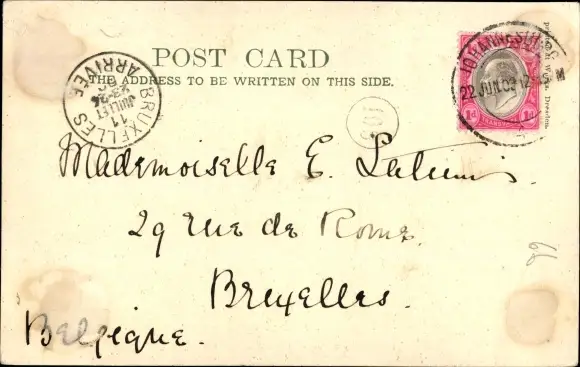 POST CARD
THE ADDRESS TO BE WRITTEN ON THIS SIDE.
BRUXELLES
11
JUILLET
ARRIVÉE
JOHANNESBURG
22 JUN 03
TRANSVAAL
1d 1d
Dresden.
Mademoiselle E.
29 rue de Rome.
Bruxelles.
Belgique.